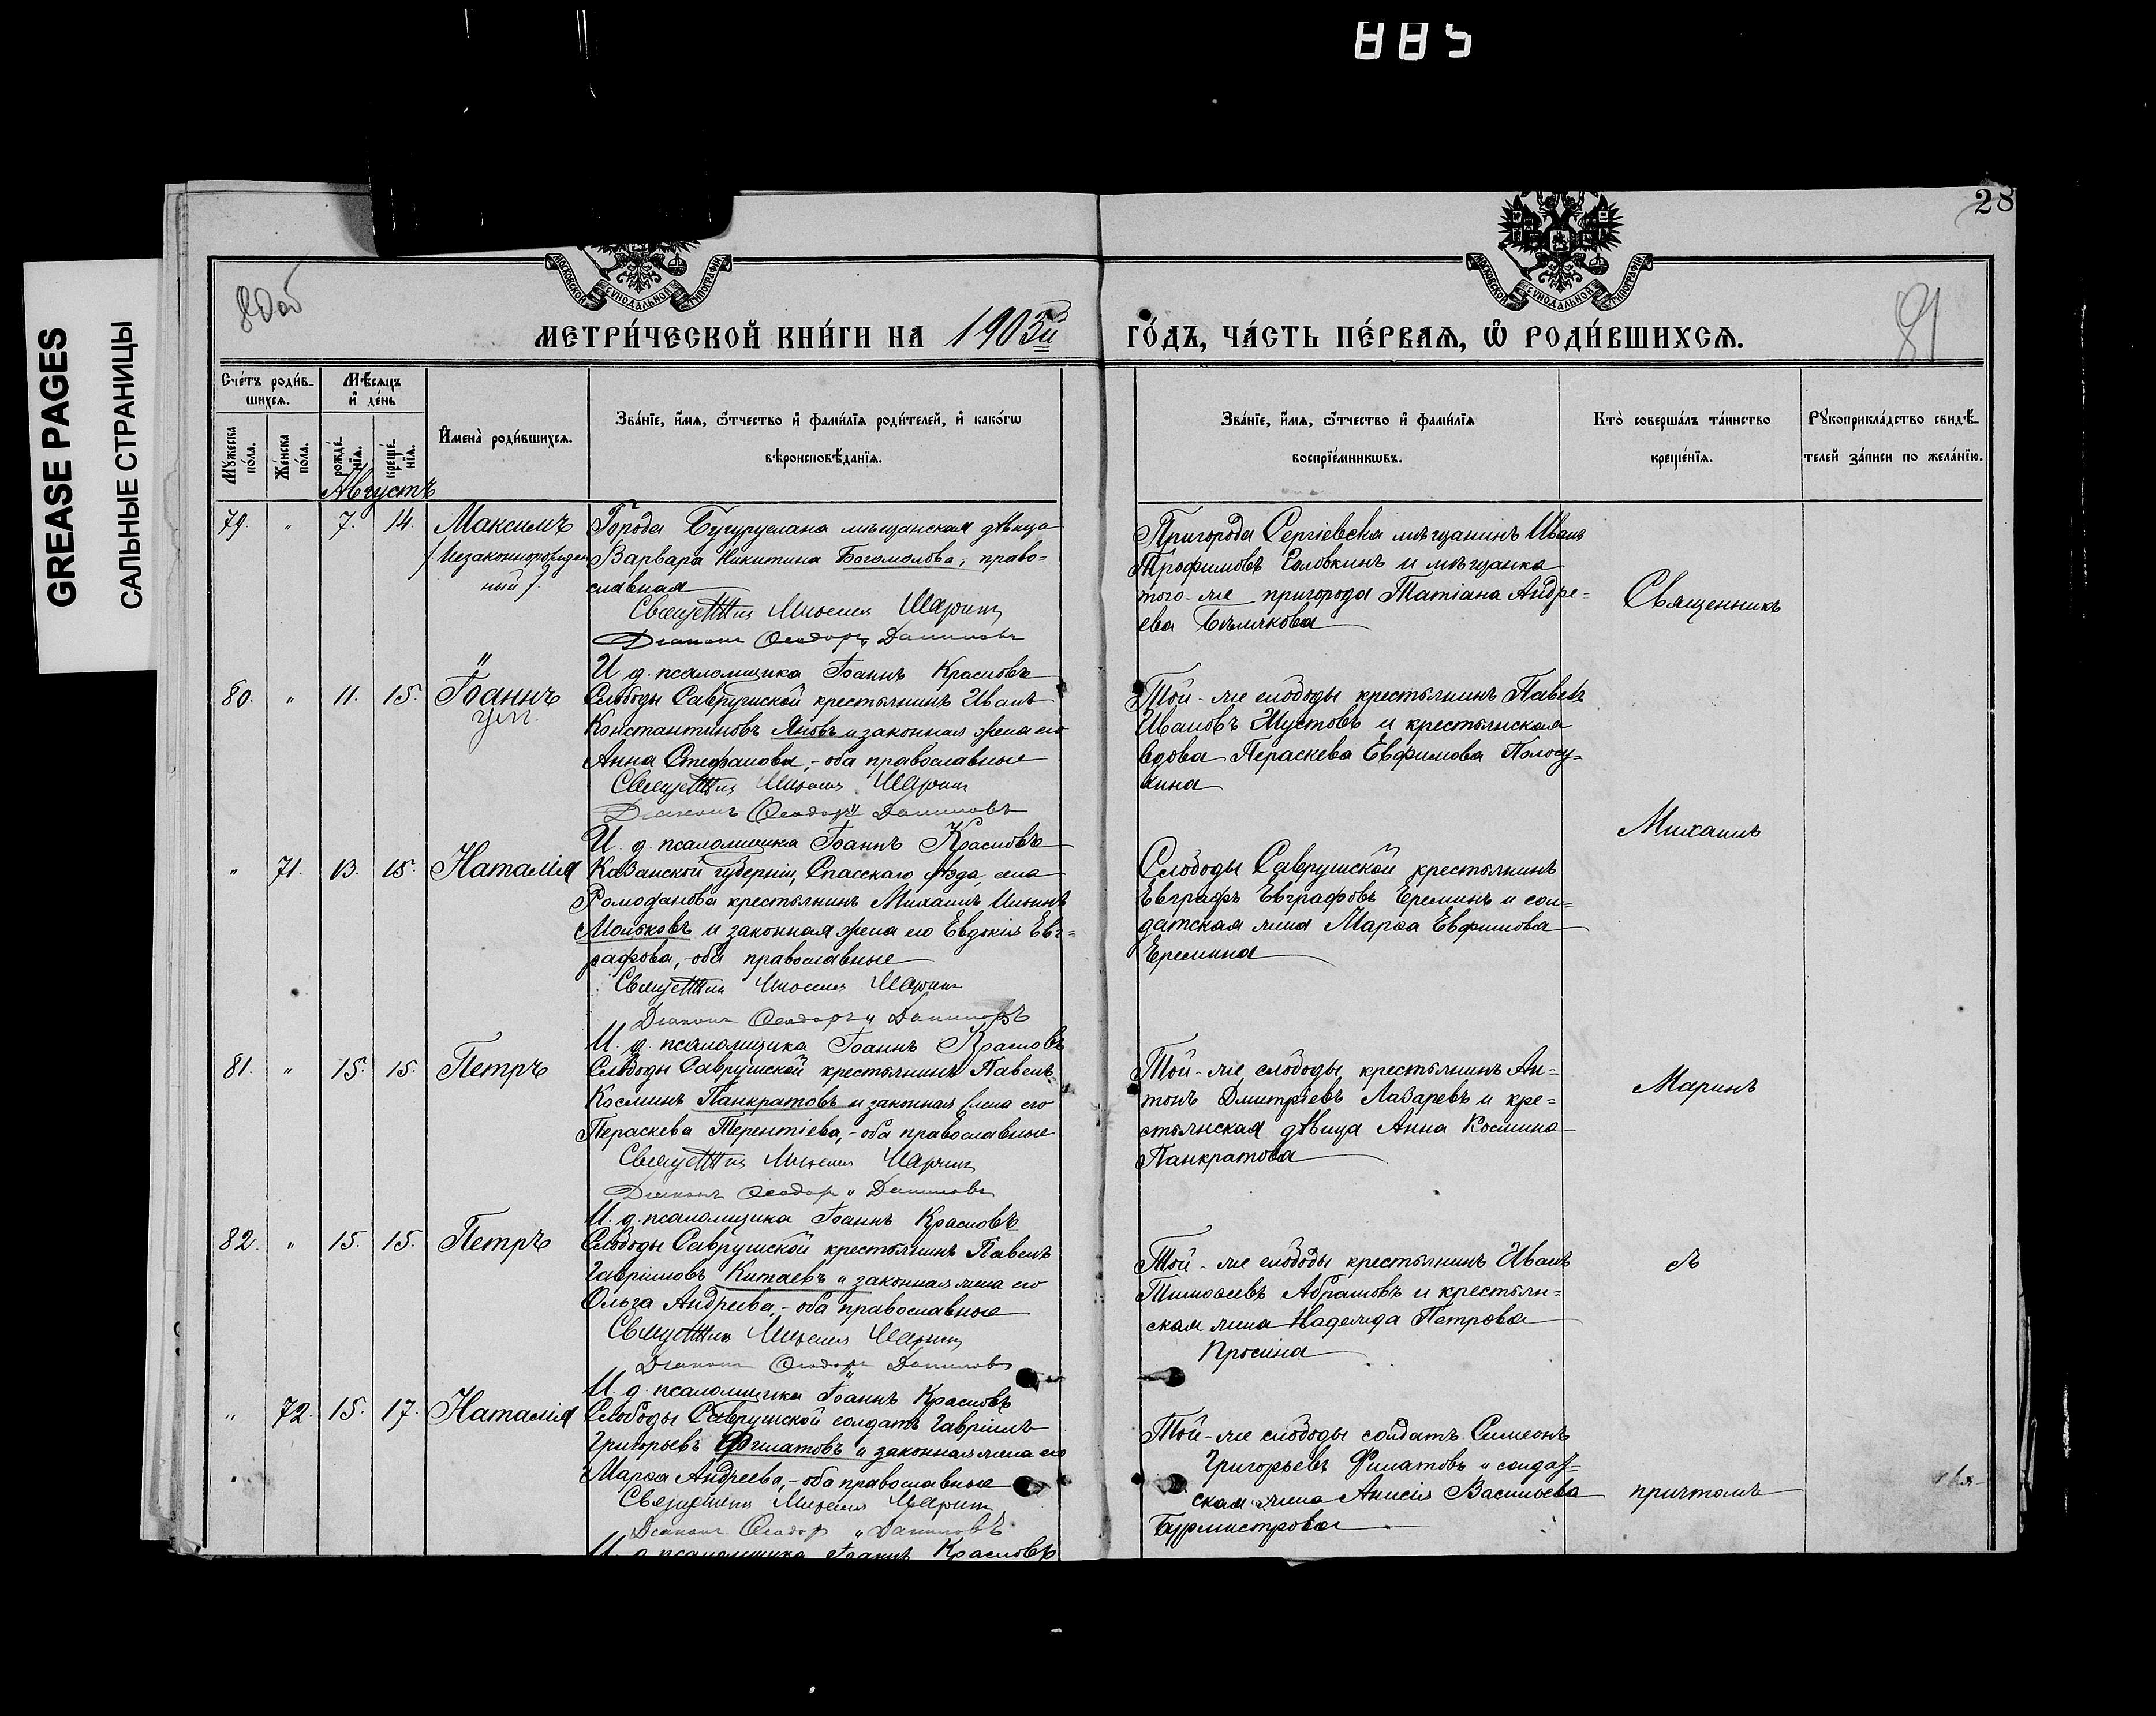 885
28
GREASE PAGES
САЛЬНЫЕ СТРАНИЦЫ
80об
81
МОСКОВСКОЙ СѴНОДАЛЬНОЙ ТИПОГРАФІИ
МОСКОВСКОЙ СѴНОДАЛЬНОЙ ТИПОГРАФІИ
МЕТРИ́ЧЕСКОЙ КНИ́ГИ НА 1903й ГО́ДЪ, ЧА́СТЬ ПЕ́РВАѦ, Ѡ҆ РОДИ́ВШИХСѦ.
Счетъ роди́в-
шихсѧ.
Мѣ́сѧцъ
и҆ де́нь
Мꙋ́жеска по́ла.
Же́нска по́ла.
рожде́-
нїѧ.
креще́-
нїѧ.
И҆мена̀ роди́вшихсѧ.
Зва́нїе, и҆́мѧ, ѻ҆́тчество и҆ фами́лїѧ роди́телей, и҆ како́гѡ
вѣроисповѣ́данїѧ.
Зва́нїе, и҆́мѧ, ѻ҆́тчество и҆ фами́лїѧ
воспрїе́мникѡвъ.
Кто̀ соверша́лъ та́инство
креще́нїѧ.
Рꙋкоприкла́дство свидѣ́-
телей за́писи по жела́нїю.
Августъ
79. " 7. 14. Максимъ
/Незаконнорожден
ный/.
Города Бугуруслана мѣщанская дѣвица
Варвара Никитина Богомолова, право-
славная
Священникъ Михаилъ Маринъ
Діаконъ Ѳеодоръ Даниловъ
И. д. псаломщика Іоаннъ Красновъ
Пригорода Сергіевска мѣщанинъ Иванъ
Трофимовъ Головкинъ и мѣщанка
того-же пригорода Татіана Андре-
ева Бѣлякова
Священникъ
80. " 11. 15. Іоаннъ
ум.
Слободы Саврушской крестьянинъ Иванъ
Константиновъ Яновъ и законная жена его
Анна Стефанова,- оба православные
Священникъ Михаилъ Маринъ
Діаконъ Ѳеодоръ Даниловъ
И. д. псаломщика Іоаннъ Красновъ
Той-же слободы крестьянинъ Павелъ
Ивановъ Шустовъ и крестьянская
вдова Параскева Евфимова Полосу-
хина
Михаилъ
" 71. 13. 15. Наталія
Казанской губерніи, Спасскаго уѣзда, села
Ромоданова крестьянинъ Михаилъ Ильинъ
Мольковъ и законная жена его Евдокія Евг-
рафова,- оба православные
Священникъ Михаилъ Маринъ
Діаконъ Ѳеодоръ Даниловъ
И. д. псаломщика Іоаннъ Красновъ
Слободы Саврушской крестьянинъ
Евграфъ Евграфовъ Ереминъ и сол-
датская жена Марѳа Евфимова
Еремина
81. " 15. 15. Петръ
Слободы Саврушской крестьянинъ Павелъ
Косминъ Панкратовъ и законная жена его
Параскева Терентіева,- оба православные
Священникъ Михаилъ Маринъ
Діаконъ Ѳеодоръ Даниловъ
И. д. псаломщика Іоаннъ Красновъ
Той-же слободы крестьянинъ Ан-
тонъ Дмитріевъ Лазаревъ и кре-
стьянская дѣвица Анна Космина
Панкратова
Маринъ
82. " 15. 15. Петръ
Слободы Саврушской крестьянинъ Павелъ
Гавріиловъ Китаевъ и законная жена его
Ольга Андреева,- оба православные
Священникъ Михаилъ Маринъ
Діаконъ Ѳеодоръ Даниловъ
И. д. псаломщика Іоаннъ Красновъ
Той-же слободы крестьянинъ Иванъ
Тимоѳеевъ Абрамовъ и крестьян-
ская жена Надежда Петрова
Просина
съ
" 72. 15. 17. Наталія
Слободы Саврушской солдатъ Гавріилъ
Григорьевъ Филатовъ и законная жена его
Марѳа Андреева,- оба православные
Священникъ Михаилъ Маринъ
Діаконъ Ѳеодоръ Даниловъ
И. д. псаломщика Іоаннъ Красновъ
Той-же слободы солдатъ Симеонъ
Григорьевъ Филатовъ и солдат-
ская жена Анисія Васильева
Бурмистрова
причтомъ